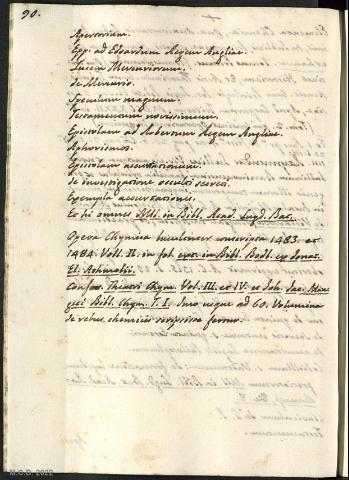 90.
Apertorium.
Epp. ad Eduardum Regem Angliae.
Lucem Mercuriorum.
de Mercurio.
Speculum magnum.
Testamentum novissimum.
Epistolam ad Robertum Regem Angliae.
Aphorismos.
Epistolam accurtationum.
de investigatione occulti secreti.
Exempla accurtationis.
Et hi omnes Msti. in Bibl. Acad. Lugd. Bat.
Opera Chymica luculenter conscripta 1483. et
1484. Voll. II. in fol. in Bibl. Bodl. ex donat.
El. Ashmolii.
Confer Theatri Chym. Vol. III. et IV. et Joh. Jac. Man-
geti Bibl. Chym. T. I. Imo usque ad 60. Volumina
de rebus chemicis scripsisse fertur.
M.C.D. 2022